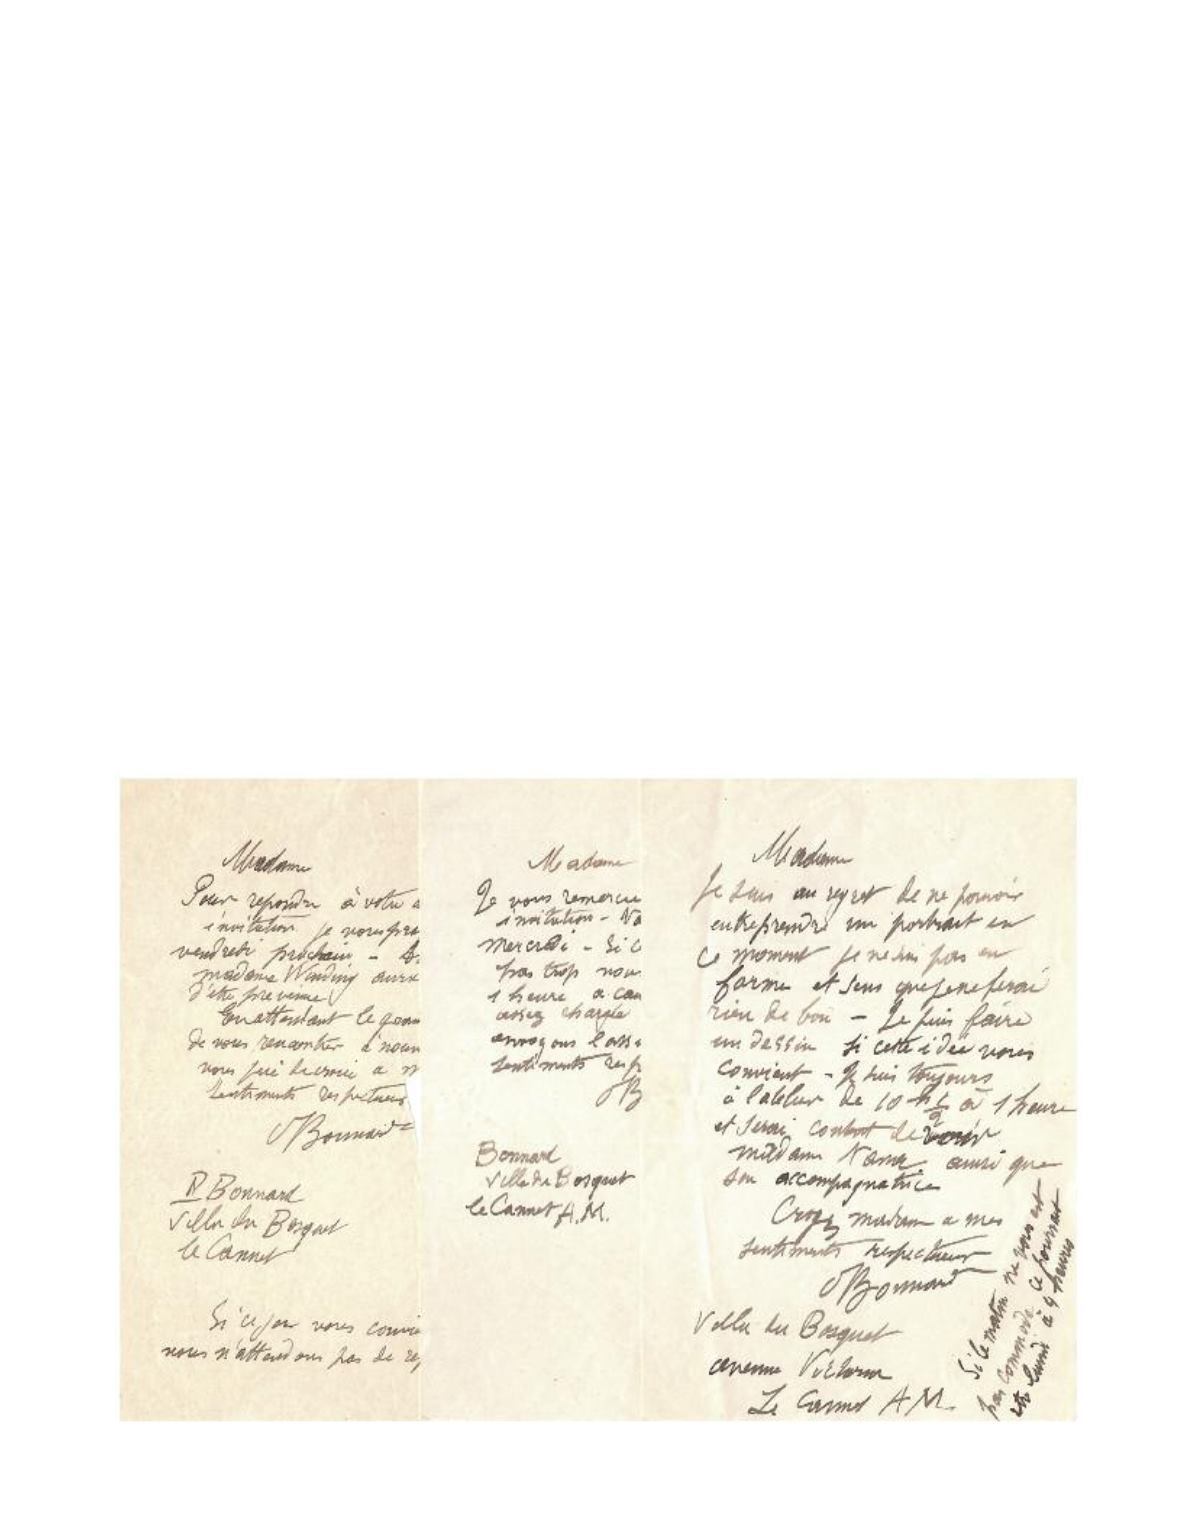 Madame
Pour repondre à votre a
invitation je vous pro
vendredi prochain -
madame Winding aura
d'être prévenue
En attendant le
de vous rencontrer à nouv
vous prie de croire a m
sentiments respectueux
PBonnard
P Bonnard
Villa du Bosquet
le Cannet
Si ce jour vous convie
nous n'attendons pas de rep
Madame
Je vous remercie
invitation - No
mercredi - Si c
pas trop nou
1 heure a cau
assez chargée
envoyons l'assu
sentiments resp
PB
Bonnard
Villa du Bosquet
le Cannet A.M.
Madame
Je suis au regret de ne pouvoir
entreprendre un portrait en
ce moment je ne suis pas en
forme et sens que je ne ferai
rien de bon - Je puis faire
un dessin si cette idée vous
convient - Je suis toujours
à l'atelier de 10 h 1/2 à 1 heure
et serai content de voir
madame ainsi que
son accompagnatrice
Croyez madame a mes
sentiments respectueux
PBonnard
Villa du Bosquet
avenue Victoria
Le Cannet A.M.
Si le matin ne vous est
pas commode ce pourrait
etre lundi à 4 heures